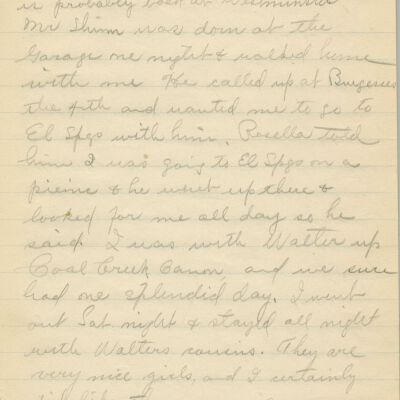 is probably back at Westminster
Mr Shinn was down at the
Garage one night & walked home
with me He called up at Burgesses
the 4th and wanted me to go to
El Spgs with him. Rosella told
him I was going to El Spgs on a
picnic & he went up there &
looked for me all day so he
said. I was with Walter up
Coal Creek Canon, and we sure
had one splendid day. I went
out Sat. night & stayed all night
with Walters cousins. They are
very nice girls, and I certainly